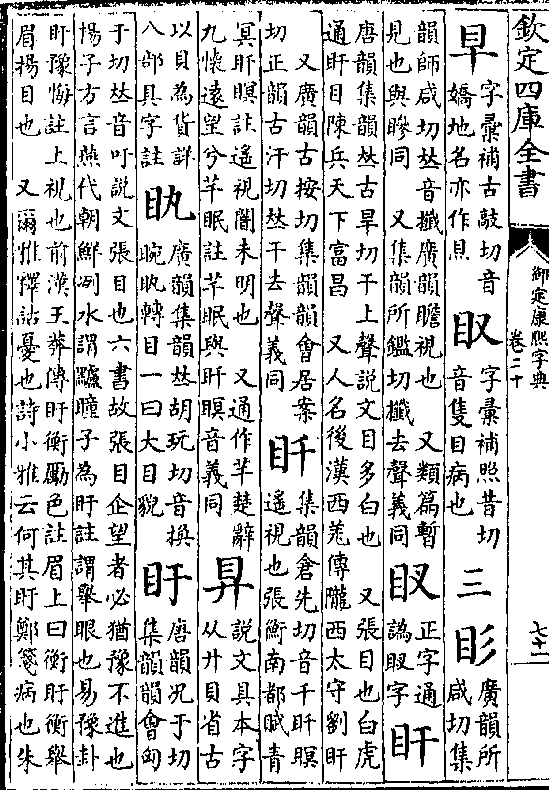 欽定四庫全書
御定康熙字典
卷二十
七十一
字彙補古敲切音
嬌地名亦作㫐
字彙補照昔切
音隻目病也
三
廣韻所
咸切集
韻師咸切𠀤音攕廣韻瞻視也 又類篇暫
見也與睒同 又集韻所鑑切攕去聲義同
正字通
譌字
盰
唐韻集韻𠀤古旱切干上聲說文目多白也 又張目也白虎
通盰目陳兵天下富昌 又人名後漢西羌傳隴西太守劉盰
又廣韻古按切集韻韻會居案
切正韻古汗切𠀤干去聲義同
集韻倉先切音千瞑
遙視也張衡南都賦青
冥盰瞑註遙視闇未明也 又通作芊楚辭
九懷遠望兮芊眠註芊眠與盰瞑音義同
說文具本字
从廾貝省古
以貝為貨詳
八部具字註
廣韻集韻𠀤胡玩切音換
睕轉目一曰大目貌
盱
唐韻况于切
集韻韻會匈
于切𠀤音吁說文張目也六書故張目企望者必猶豫不進也
揚子方言燕代朝鮮洌水謂驢瞳子為盱註謂舉眼也易豫卦
盱豫悔註上視也前漢王莽傳盱衡厲色註眉上曰衡盱衡舉
眉揚目也 又爾雅釋詁憂也詩小雅云何其盱鄭箋病也朱